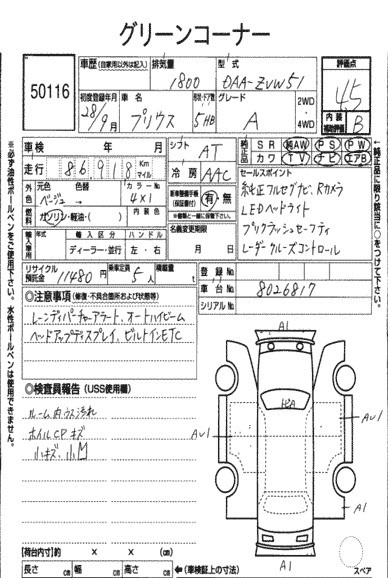 グリーンコーナー
50116
車歴(自家用以外は記入)
排気量
1800
型式
DAA-ZVW51
評価点
4.5
初度登録年月
28/9月
車名
プリウス
形状・ドア数
5HB
グレード
A
2WD
4WD
内装補助評価
B
車検 年 月
走行 86,918 Km マイル
シフト AT
冷房 AAC
純正品 SR 純AW PS PW
カワ TV ナビ エアB
外色 元色 色替 カラーNo.
ベージュ→ 4X1
燃料 ガソリン・軽油・( )
内装色
新車整備手帳(保証書付) 有・無
※備類と一緒に保管下さい。
名義変更期限 月 日
セールスポイント
純正フルセグナビ、Rカメラ
LEDヘッドライト
プリクラッシュセーフティ
レーダークルーズコントロール
輸入車用 年式 輸入区分 ハンドル
ディーラー・並行 左・右
リサイクル預託金 11480円
乗車定員 5人
積載量 t
登録No.
車台No. 8026817
シリアルNo.
◎注意事項(修復・不具合箇所および状態等)
レーンディパーチャーアラート、オートハイビーム
ヘッドアップディスプレイ、ビルトインETC
◎検査員報告(USS使用欄)
ルーム内ウス汚れ
ホイルCPキズ
小キズ、小凹
A1
ヒA
AU1
AU1
A1
A1
スペア
【荷台内寸】約 × × (cm)
長さ cm 幅 cm 高さ cm ←(車検証上の寸法)
※必ず油性ボールペンをご使用下さい。水性ボールペンは使用できません。
★純正品に限り該当に○をつけて下さい。